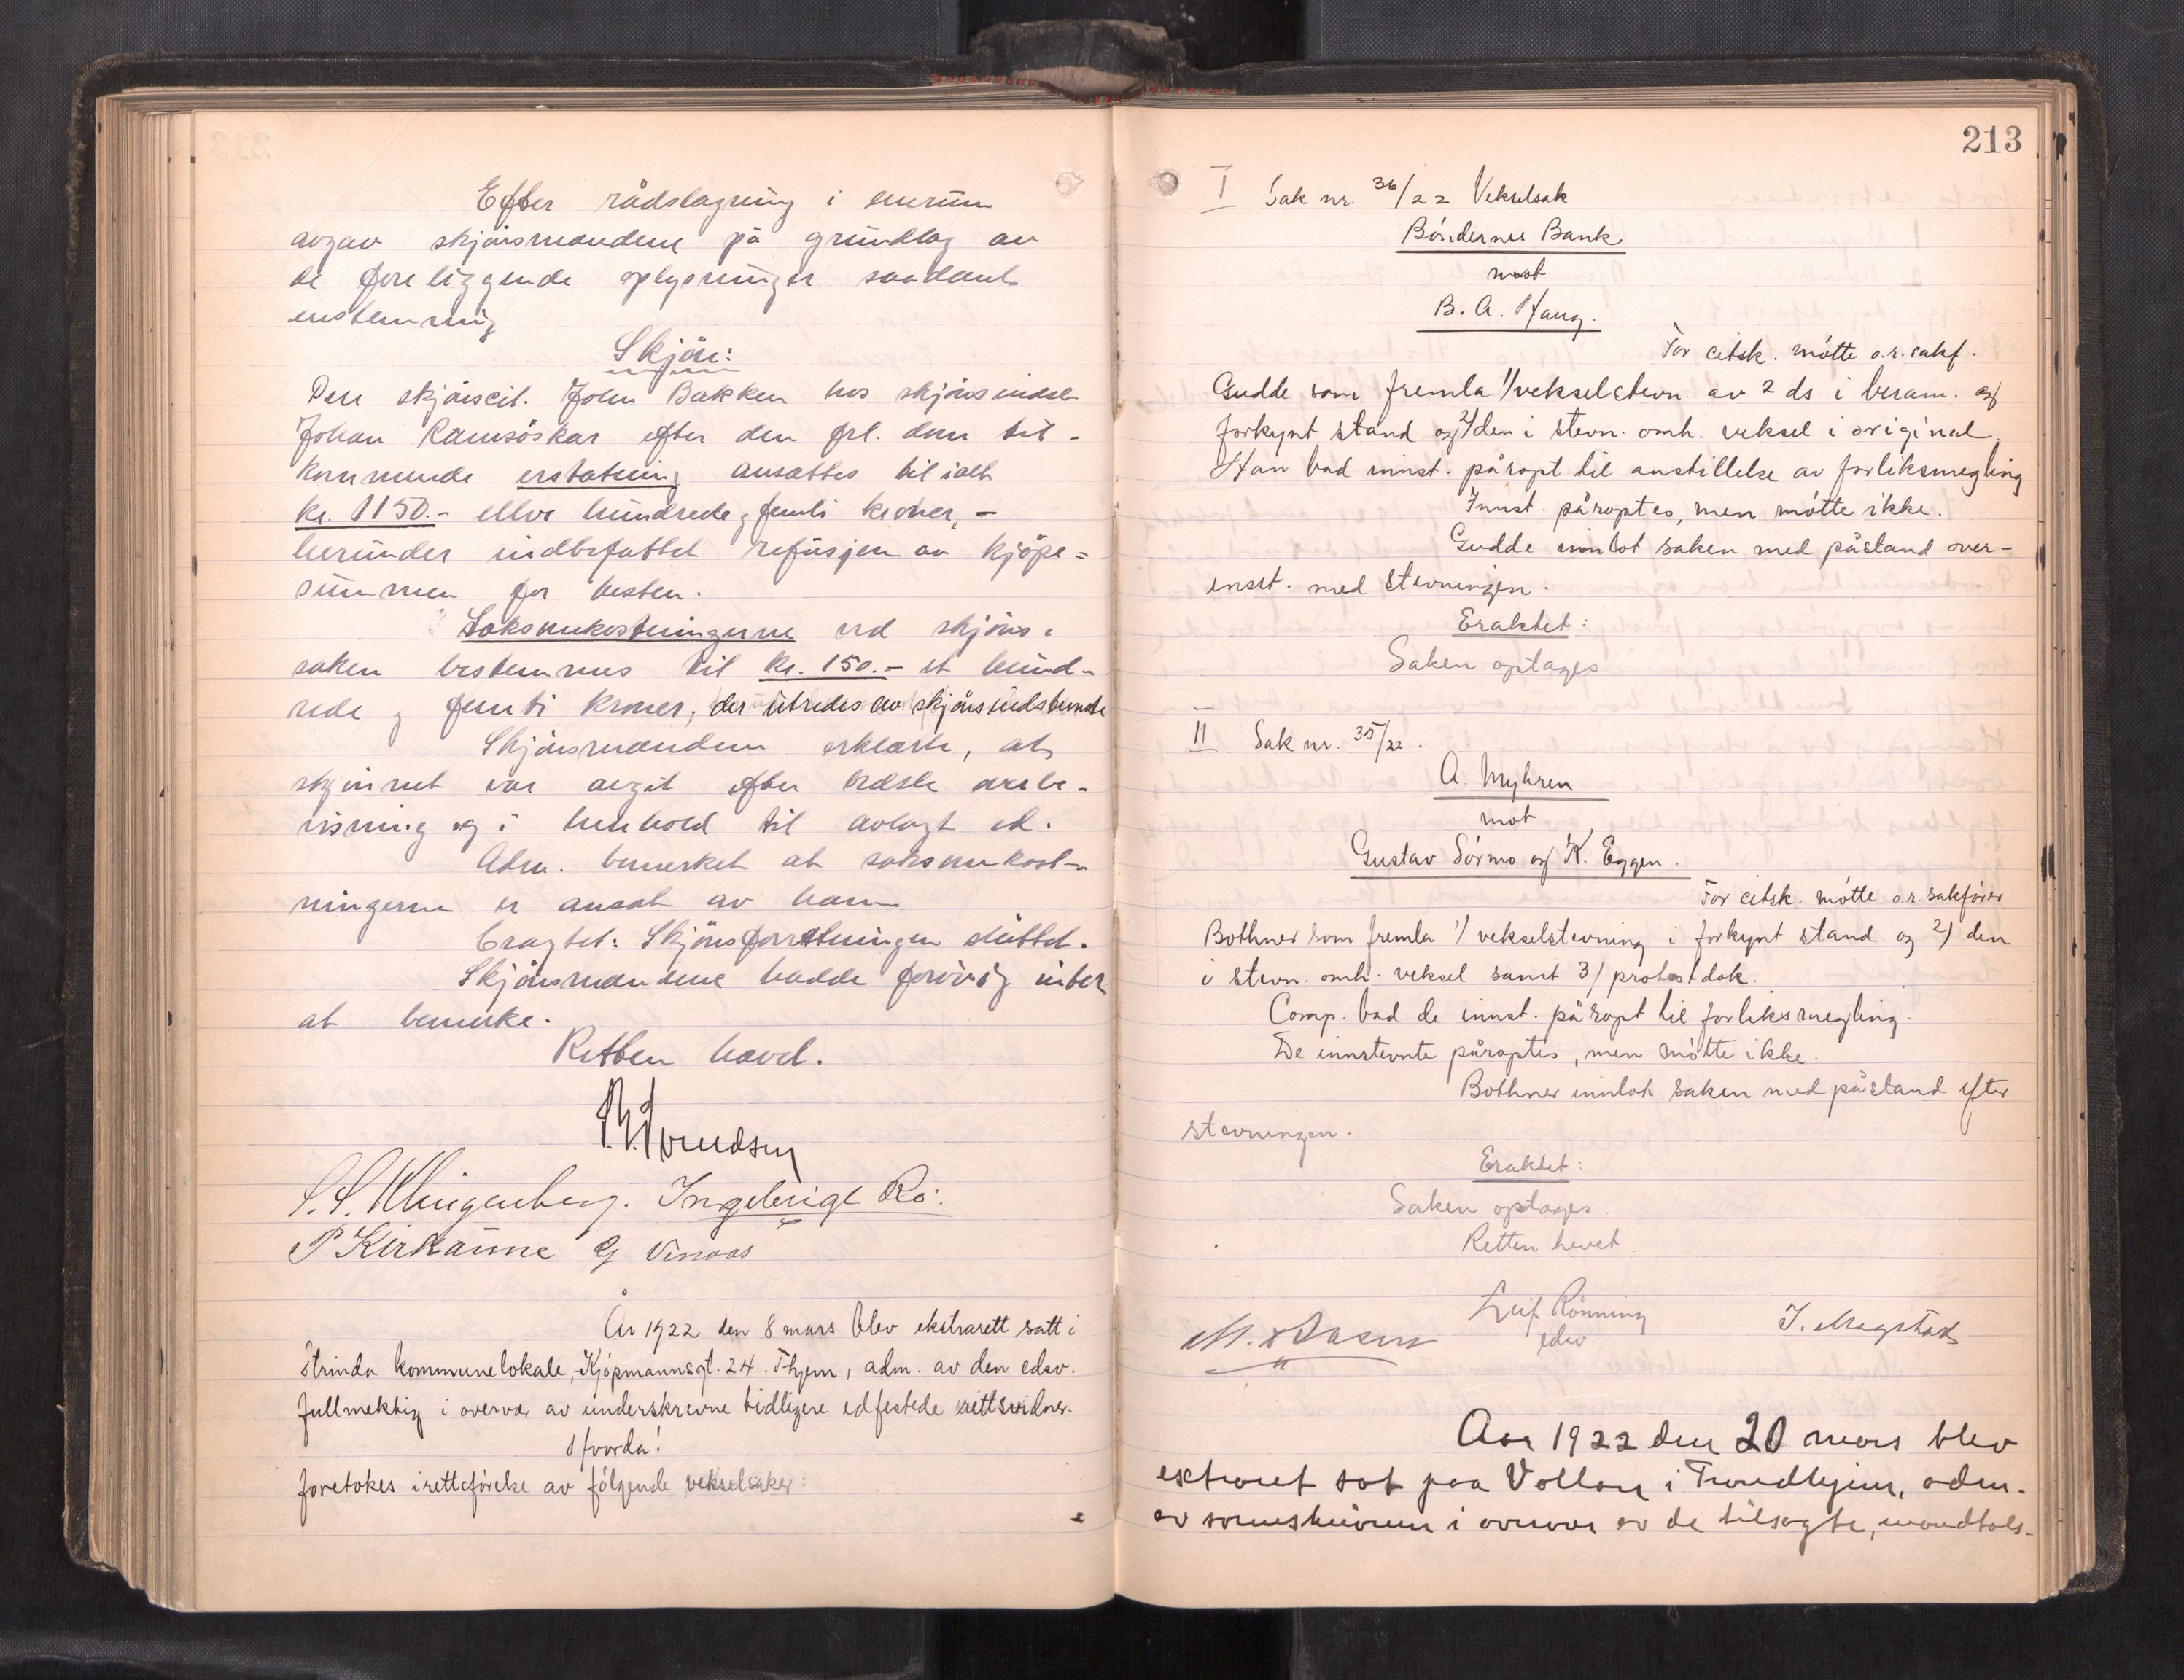 Efter rådslagning i enrum
avgav skjönsmændene på grundlag av
de foreliggende oplysninger saadant
enstemmig
Skjön:
Den skjönscit. John Bakken hos skjönsindst.
Johan Ramsöskar efter den frl. dom til-
kommende erstatning ansættes til ialt
kr. 1150.- elleve hundrede og femti kroner, -
herunder indbefattet refusjon av kjöpe-
summen for hesten.
Saksomkostningerne ved skjöns-
saken bestemmes til kr. 150.- et hund-
rede og femti kroner, der utredes av skjönsindstevnte
Skjönsmændene erklærte, at
skjönnet var avgit efter bedste overbe-
visning og i henhold til avlagt ed.
Adm. bemerket at saksomkost-
ningerne er ansat av ham
Eragtet: Skjönsforretningen sluttet.
Skjönsmændene hadde forövrig intet
at bemerke.
Retten hævet.
S. S. Klingenberg. Ingebrigt Rö.
P Kirkaune G Vinaas
År 1922 den 8 mars blev ekstrarett satt i
Strinda kommunelokale, Kjöpmannsgt. 24. Thjem, adm. av den edsv.
fullmektig i overvær av underskrevne tidligere edfestede rettsvidner.
Hvorda!
foretokes iretteförelse av fölgende vekselsaker:
213
I Sak nr. 36/22 Vekselsak
Böndernes Bank
mot
B. A. Haug.
For citsk. mötte o.r.sakf.
Gudde som fremla 1/ vekselstevn. av 2 ds i beram. og
forkynt stand og 2/ den i stevn. omh. veksel i original.
Han bad innst. påropt til anstillelse av forliksmegling
Innst. påroptes, men mötte ikke.
Gudde innlot saken med påstand over-
enst. med stevningen.
Eraktet:
Saken optages
II Sak nr. 35/22.
A. Myhren
mot
Gustav Sörmo og K. Eggen.
For citsk. mötte o.r.sakförer
Bothner som fremla 1/ vekselstevning i forkynt stand og 2/ den
i stevn. omh. veksel samt 3/ protestdok.
Comp. bad de innst. påropt til forliksmegling.
De innstevnte påroptes, men mötte ikke.
Bothner innlot saken med påstand efter
stevningen.
Eraktet:
Saken optages.
Retten hevet.
Leif Rönning
edsv.
J. Magstad
Aar 1922 den 20 mars blev
extraret sat paa Vollan i Trondhjem, adm.
av sorenskriveren i overvær av de tilsagte, mandtals-